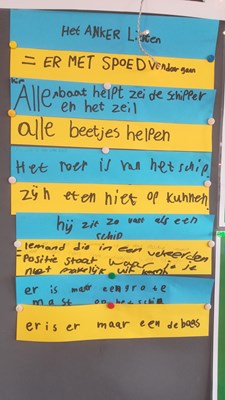 Het ANKER Lichten
= ER MET SPOED vandoor gaan
Alle baat helpt zei de schipper
en het zeil
alle beetjes helpen
Het roer is van het schip
zijn eten niet op kunnen
hij zit zo vast als een
schip
= iemand die in een verkeerden
Positie staat waar je je
niet makelijk uit komt
er is maar een grote
mast op het schip
er is er maar een de baas